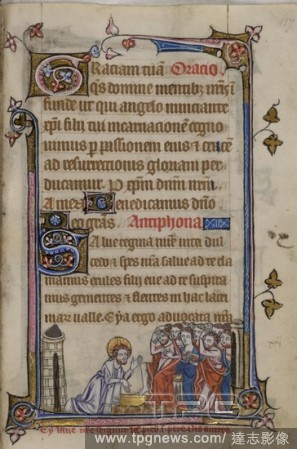 Graciam tuā Oracio
q̄s domine mentib⁊ nr̄is ī
funde ut qui angelo nunciante
xp̄i filii tui incarnacionem cogno
uimus p passionem eius ⁊ crucē
ad resurrectionis gloriam per
ducamur. P xp̄m dn̄m nr̄m.
Amen. Benedicamus dn̄o
Deo gr̄as. Antiphona
Salue regina mīe uita dul
cedo ⁊ spes nr̄a salue ad te cla
mamus exules filii eue ad te suspira
mus gementes ⁊ flentes in hac lacri
mar ualle. Eya ergo aduocata nr̄a
TPG
www.tpgnews.com/達志影像